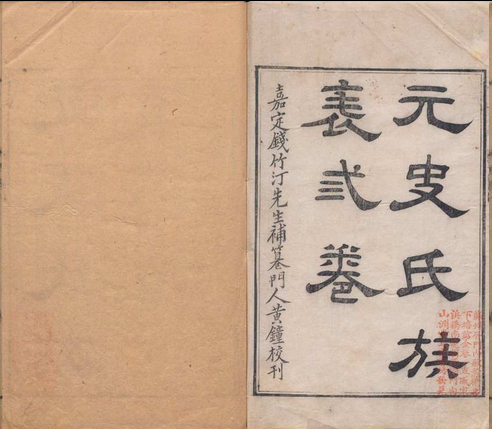 元史氏族
表弎卷
嘉定錢竹汀先生補篹門人黃鐘校刊